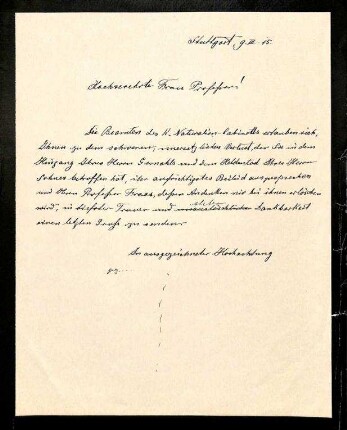 Stuttgart, 9. III. 15.
Hochverehrte Frau Professor!
Die Beamten des K. Naturalien-Cabinettes erlauben sich,
Ihnen zu dem schweren, unersetzlichen Verlust, der Sie in dem
Hingang Ihres Herrn Gemahls und dem Heldentod Ihres Herrn
Sohnes betroffen hat, ihr aufrichtigstes Beileid auszusprechen
und Herrn Professor Fraas, dessen Andenken nie bei ihnen erlöschen
wird, in tiefster Trauer und Dankbarkeit
einen letzten Gruß zu senden.
In ausgezeichneter Hochachtung